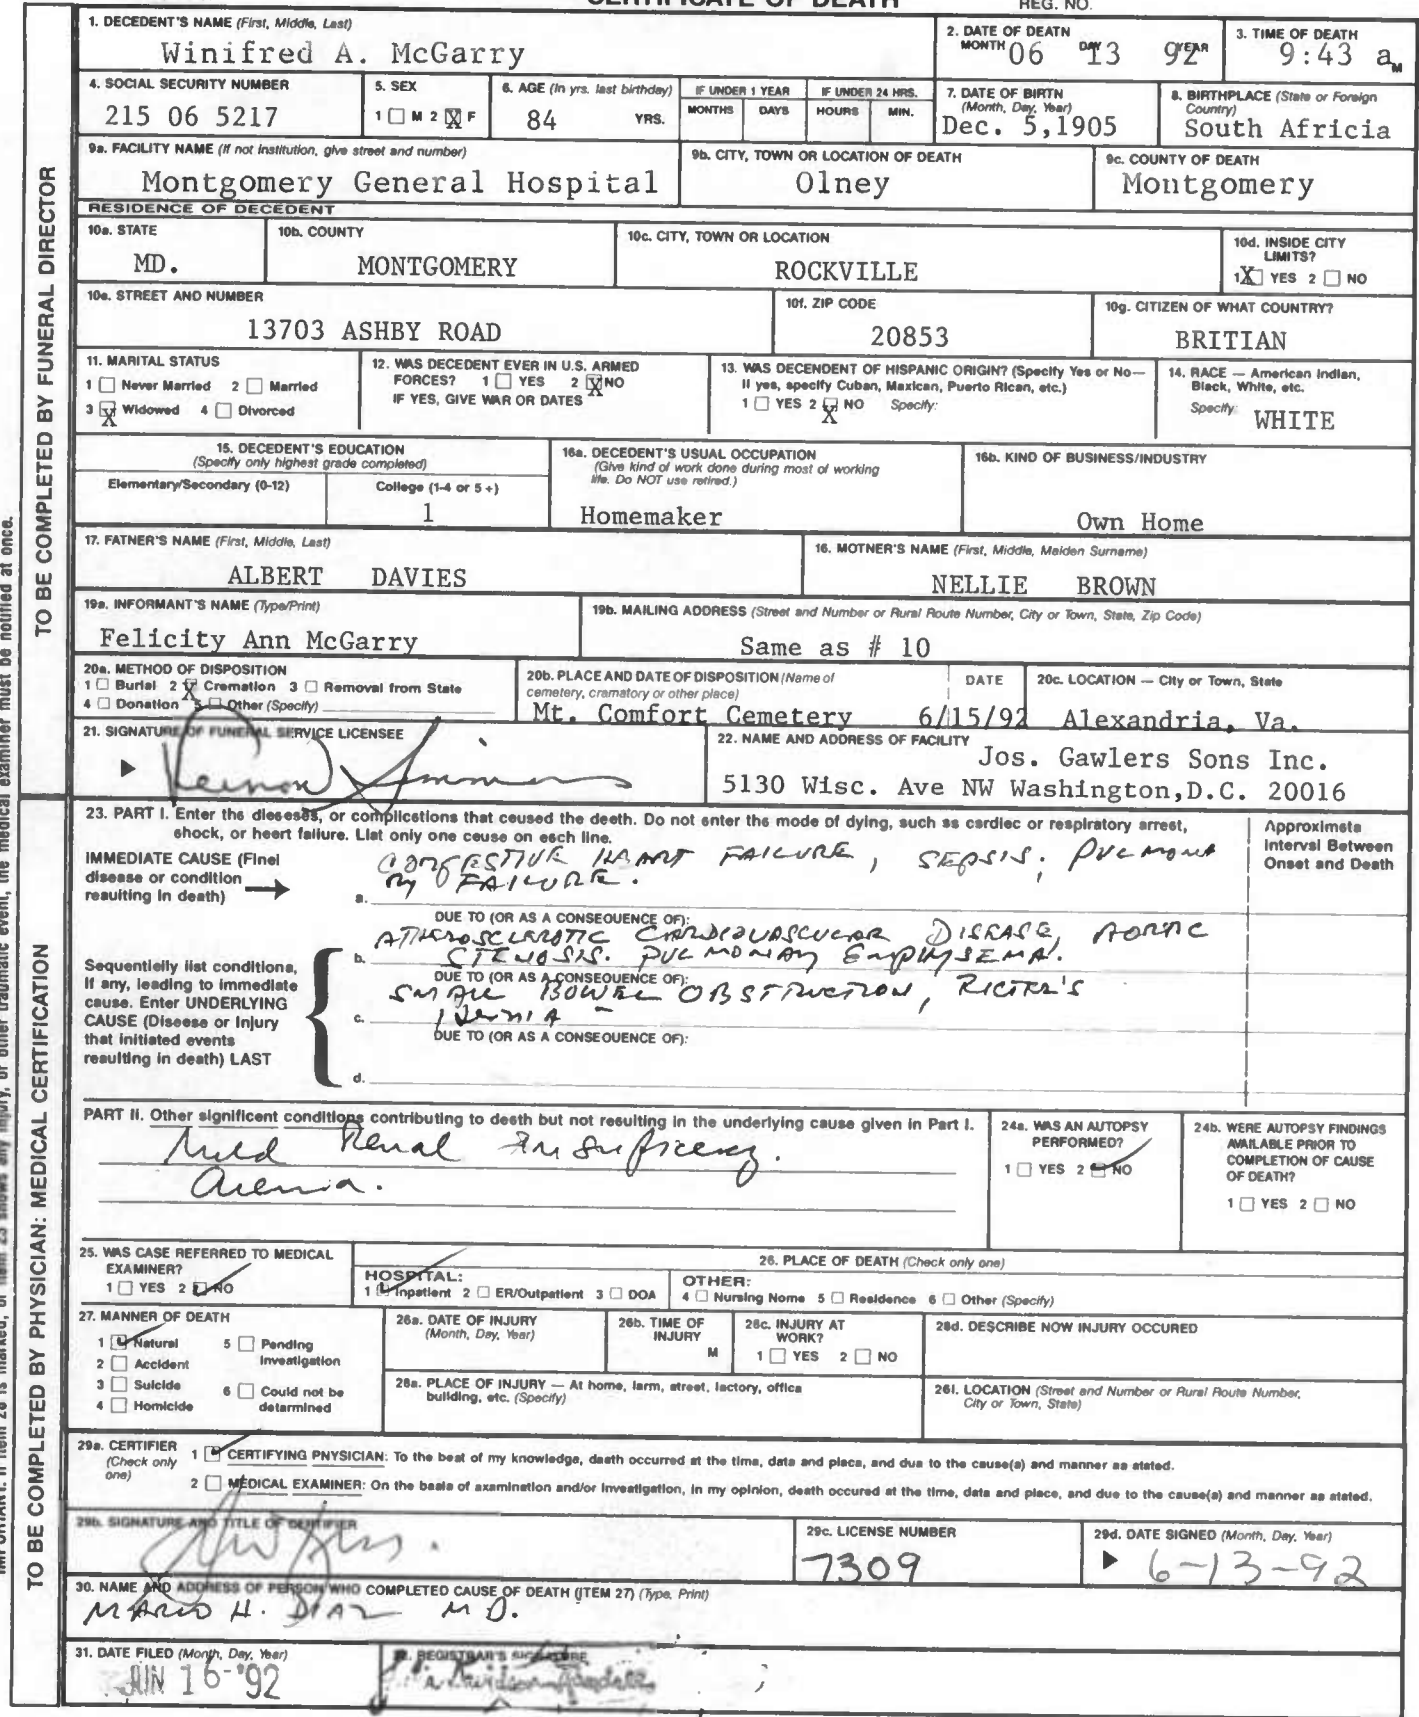 CERTIFICATE OF DEATH
REG. NO.
1. DECEDENT'S NAME (First, Middle, Last)
Winifred A. McGarry
2. DATE OF DEATN
MONTH 06 DAY 13 92 YEAR
3. TIME OF DEATH
9:43 a M
4. SOCIAL SECURITY NUMBER
215 06 5217
5. SEX
1 M 2 X F
6. AGE (In yrs. last birthday)
84 YRS.
IF UNDER 1 YEAR
MONTHS DAYS
IF UNDER 24 HRS.
HOURS MIN.
7. DATE OF BIRTN
(Month, Day, Year)
Dec. 5,1905
8. BIRTHPLACE (State or Foreign
Country)
South Africia
9a. FACILITY NAME (If not institution, give street and number)
Montgomery General Hospital
9b. CITY, TOWN OR LOCATION OF DEATH
Olney
9c. COUNTY OF DEATH
Montgomery
RESIDENCE OF DECEDENT
10a. STATE
MD.
10b. COUNTY
MONTGOMERY
10c. CITY, TOWN OR LOCATION
ROCKVILLE
10d. INSIDE CITY
LIMITS?
1 X YES 2 NO
10e. STREET AND NUMBER
13703 ASHBY ROAD
10f. ZIP CODE
20853
10g. CITIZEN OF WHAT COUNTRY?
BRITIAN
11. MARITAL STATUS
1 Never Married 2 Married
3 X Widowed 4 Divorced
12. WAS DECEDENT EVER IN U.S. ARMED
FORCES? 1 YES 2 X NO
IF YES, GIVE WAR OR DATES
13. WAS DECENDENT OF HISPANIC ORIGIN? (Specify Yes or No—
If yes, specify Cuban, Maxican, Puerto Rican, etc.)
1 YES 2 X NO Specify:
14. RACE — American Indian,
Black, White, etc.
Specify: WHITE
15. DECEDENT'S EDUCATION
(Specify only highest grade completed)
Elementary/Secondary (0-12) College (1-4 or 5 +)
1
16a. DECEDENT'S USUAL OCCUPATION
(Give kind of work done during most of working
life. Do NOT use retired.)
Homemaker
16b. KIND OF BUSINESS/INDUSTRY
Own Home
17. FATNER'S NAME (First, Middle, Last)
ALBERT DAVIES
16. MOTNER'S NAME (First, Middle, Maiden Surname)
NELLIE BROWN
19a. INFORMANT'S NAME (Type/Print)
Felicity Ann McGarry
19b. MAILING ADDRESS (Street and Number or Rural Route Number, City or Town, State, Zip Code)
Same as # 10
20a. METHOD OF DISPOSITION
1 Burial 2 X Cremation 3 Removal from State
4 Donation 5 Other (Specify)
20b. PLACE AND DATE OF DISPOSITION (Name of
cemetery, cramatory or other place)
Mt. Comfort Cemetery
DATE
6/15/92
20c. LOCATION — City or Town, State
Alexandria, Va.
21. SIGNATURE OF FUNERAL SERVICE LICENSEE
22. NAME AND ADDRESS OF FACILITY
Jos. Gawlers Sons Inc.
5130 Wisc. Ave NW Washington,D.C. 20016
23. PART I. Enter the diseses, or complications that ceused the deeth. Do not enter the mode of dying, such as cardiec or respiratory arrest,
shock, or heert failure. List only one ceuse on eech line.
Approximete
Intervel Between
Onset and Death
IMMEDIATE CAUSE (Finel
disease or condition
resulting in death)
a. CONGESTIVE HEART FAILURE, SEPSIS, PULMONA
RY FAILURE.
DUE TO (OR AS A CONSEQUENCE OF):
b. ATHEROSCLEROTIC CARDIOVASCULAR DISEASE, AORTIC
STENOSIS. PULMONARY EMPHYSEMA.
DUE TO (OR AS A CONSEQUENCE OF):
c. SMALL BOWEL OBSTRUCTION, RICTER'S
HERNIA
DUE TO (OR AS A CONSEQUENCE OF):
d.
Sequentielly list conditions,
if any, leading to immediate
cause. Enter UNDERLYING
CAUSE (Disease or Injury
that initiated events
resulting in death) LAST
PART II. Other significent conditions contributing to death but not resulting in the underlying cause given in Part I.
Mild Renal Insuficency.
Anemia.
24a. WAS AN AUTOPSY
PERFORMED?
1 YES 2 NO
24b. WERE AUTOPSY FINDINGS
AVAILABLE PRIOR TO
COMPLETION OF CAUSE
OF DEATH?
1 YES 2 NO
25. WAS CASE REFERRED TO MEDICAL
EXAMINER?
1 YES 2 NO
26. PLACE OF DEATH (Check only one)
HOSPITAL:
1 Inpatient 2 ER/Outpatient 3 DOA
OTHER:
4 Nursing Nome 5 Residence 6 Other (Specify)
27. MANNER OF DEATH
1 Natural 5 Pending
Investigation
2 Accident
3 Suicide 6 Could not be
detarmined
4 Homicide
28a. DATE OF INJURY
(Month, Day, Year)
26b. TIME OF
INJURY
M
28c. INJURY AT
WORK?
1 YES 2 NO
28d. DESCRIBE NOW INJURY OCCURED
28a. PLACE OF INJURY — At home, larm, street, lactory, offica
building, etc. (Specify)
26l. LOCATION (Street and Number or Rural Route Number,
City or Town, State)
29a. CERTIFIER
(Check only
one)
1 CERTIFYING PNYSICIAN: To the best of my knowledge, daath occurred at the tima, data and placa, and dua to the cause(a) and manner as atated.
2 MEDICAL EXAMINER: On the basla of axamination and/or Investigation, in my opinion, death occured at the time, data and place, and due to the cause(a) and manner as atated.
29b. SIGNATURE AND TITLE OF CERTIFIER
29c. LICENSE NUMBER
7309
29d. DATE SIGNED (Month, Day, Year)
6-13-92
30. NAME AND ADDRESS OF PERSON WHO COMPLETED CAUSE OF DEATH (ITEM 27) (Type, Print)
MARIO H. DIAZ M D.
31. DATE FILED (Month, Day, Year)
JUN 16-'92
32. REGISTRAR'S SIGNATURE
TO BE COMPLETED BY FUNERAL DIRECTOR
TO BE COMPLETED BY PHYSICIAN: MEDICAL CERTIFICATION
shows any injury, or other traumatic event, the medical examiner must be notified at once.